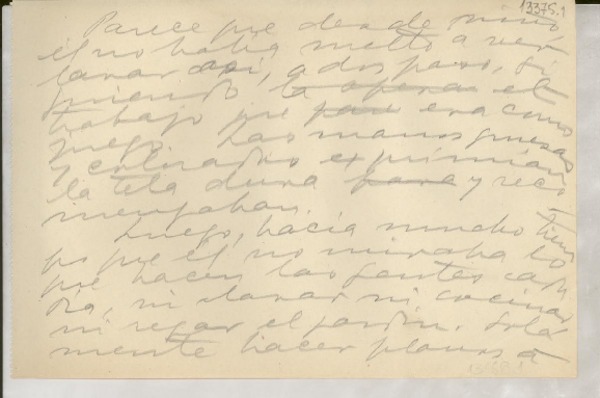 13375.1
Parece que desde niño,
él no había vuelto a ver
lavar así, a dos pasos, si
guiendo la opera el
trabajo que era como
juego. Las manos gruesas
y coloradas exprimían
la tela dura para y reco
menzaban.
Luego, hacía mucho tiem
po que él no miraba lo
que hacen las gentes cada
día, ni lavar ni cocinar
ni regar el jardín. Sola
mente hacer planes a